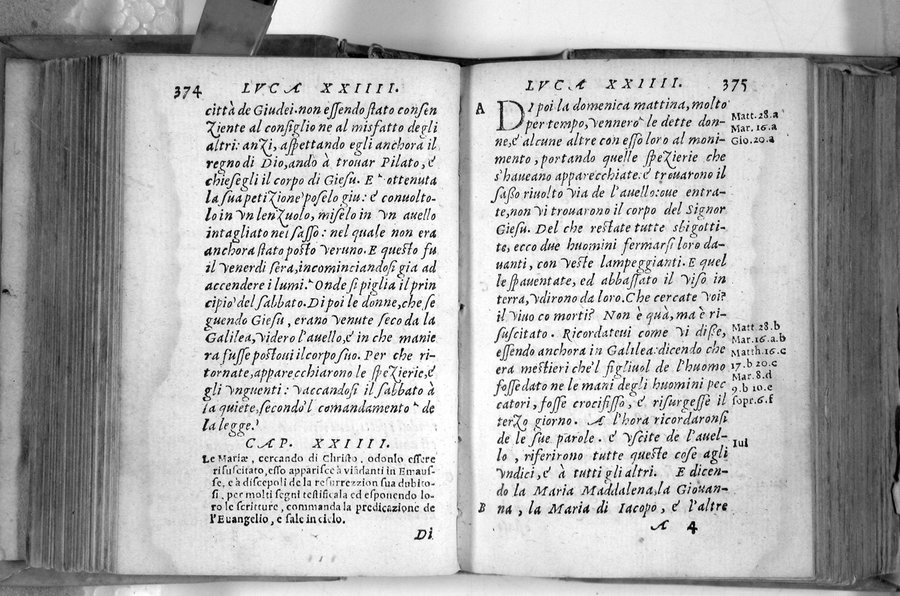 374 LVCA XXIIII.
città de Giudei. non essendo stato consen
ziente al consiglio ne al misfatto degli
altri: anzi, aspettando egli anchorà il
regno di Dio, andò à trouar Pilato, è
chiesegli il corpo di Giesu. E ottenuta
la sua petizione poselo giu: è conuolto-
lo in vn lenzuolo, miselo in vn auello
intagliato nei sasso: nel quale non era
anchora stato posto veruno. E questo fu
il venerdi sera, incominciandosi gia ad
accendere i lumi. Onde si piglia il prin
cipio del sabbato. Di poi le donne, che se
guendo Giesu, erano venute seco da la
Galilea, videro l'auello, è in che manie
ra fusse postoui il corpo suo. Per che ri-
tornate, apparecchiarono le spezierie, è
gli vnguenti: vaccandosi il sabbato à
la quiete, secondo'l comandamento de
la legge.
CAP. XXIIII.
Le Mariæ, cercando di Christo, odonlo essere
risuscitato, esso apparisce à viãdanti in Emaus-
se, e à discepoli de la resurrezzion sua dubito-
si, per molti segni testificala ed esponendo lo-
ro le scritture, commanda la predicazione de
l'Euangelio, e sale in cielo.
Di
LVCA XXIIII. 375
A
DI poi la domenica mattina, molto
per tempo, vennero le dette don-
ne, è alcune altre con esso loro al moni-
mento, portando quelle spezierie che
s'haueano apparecchiate. è trouarono il
sasso riuolto via de l'auello: oue entra-
te, non vi trouarono il corpo del Signor
Giesu. Del che restate tutte sbigotti-
te, ecco due huomini fermarsi loro da-
uanti, con veste lampeggianti. E quel
le spauentate, ed abbassato il viso in
terra, vdirono da loro. Che cercate voi?
il viuo co morti? Non è quà, ma è ri-
suscitato. Ricordateui come vi disse,
essendo anchora in Galilea: dicendo che
era mestieri che'l figliuol de l'huomo
fosse dato ne le mani degli huomini pec
catori, fosse crocifisso, è risurgesse il
terzo giorno. A l'hora ricordaronsi
de le sue parole. è vscite de l'auel-
lo, riferirono tutte queste cose agli
vndici, è à tutti gli altri. E dicen-
do la Maria Maddalena, la Giouan-
B
na, la Maria di Iacopo, è l'altre
A 4
Matt. 28. a
Mar. 16. a
Gio. 20. a
Matt. 28. b
Mar. 16. a. b
Matth. 16. c
17. b 20. c
Mar. 8. d
9. b 10. e
sopr. 6. f
Iui